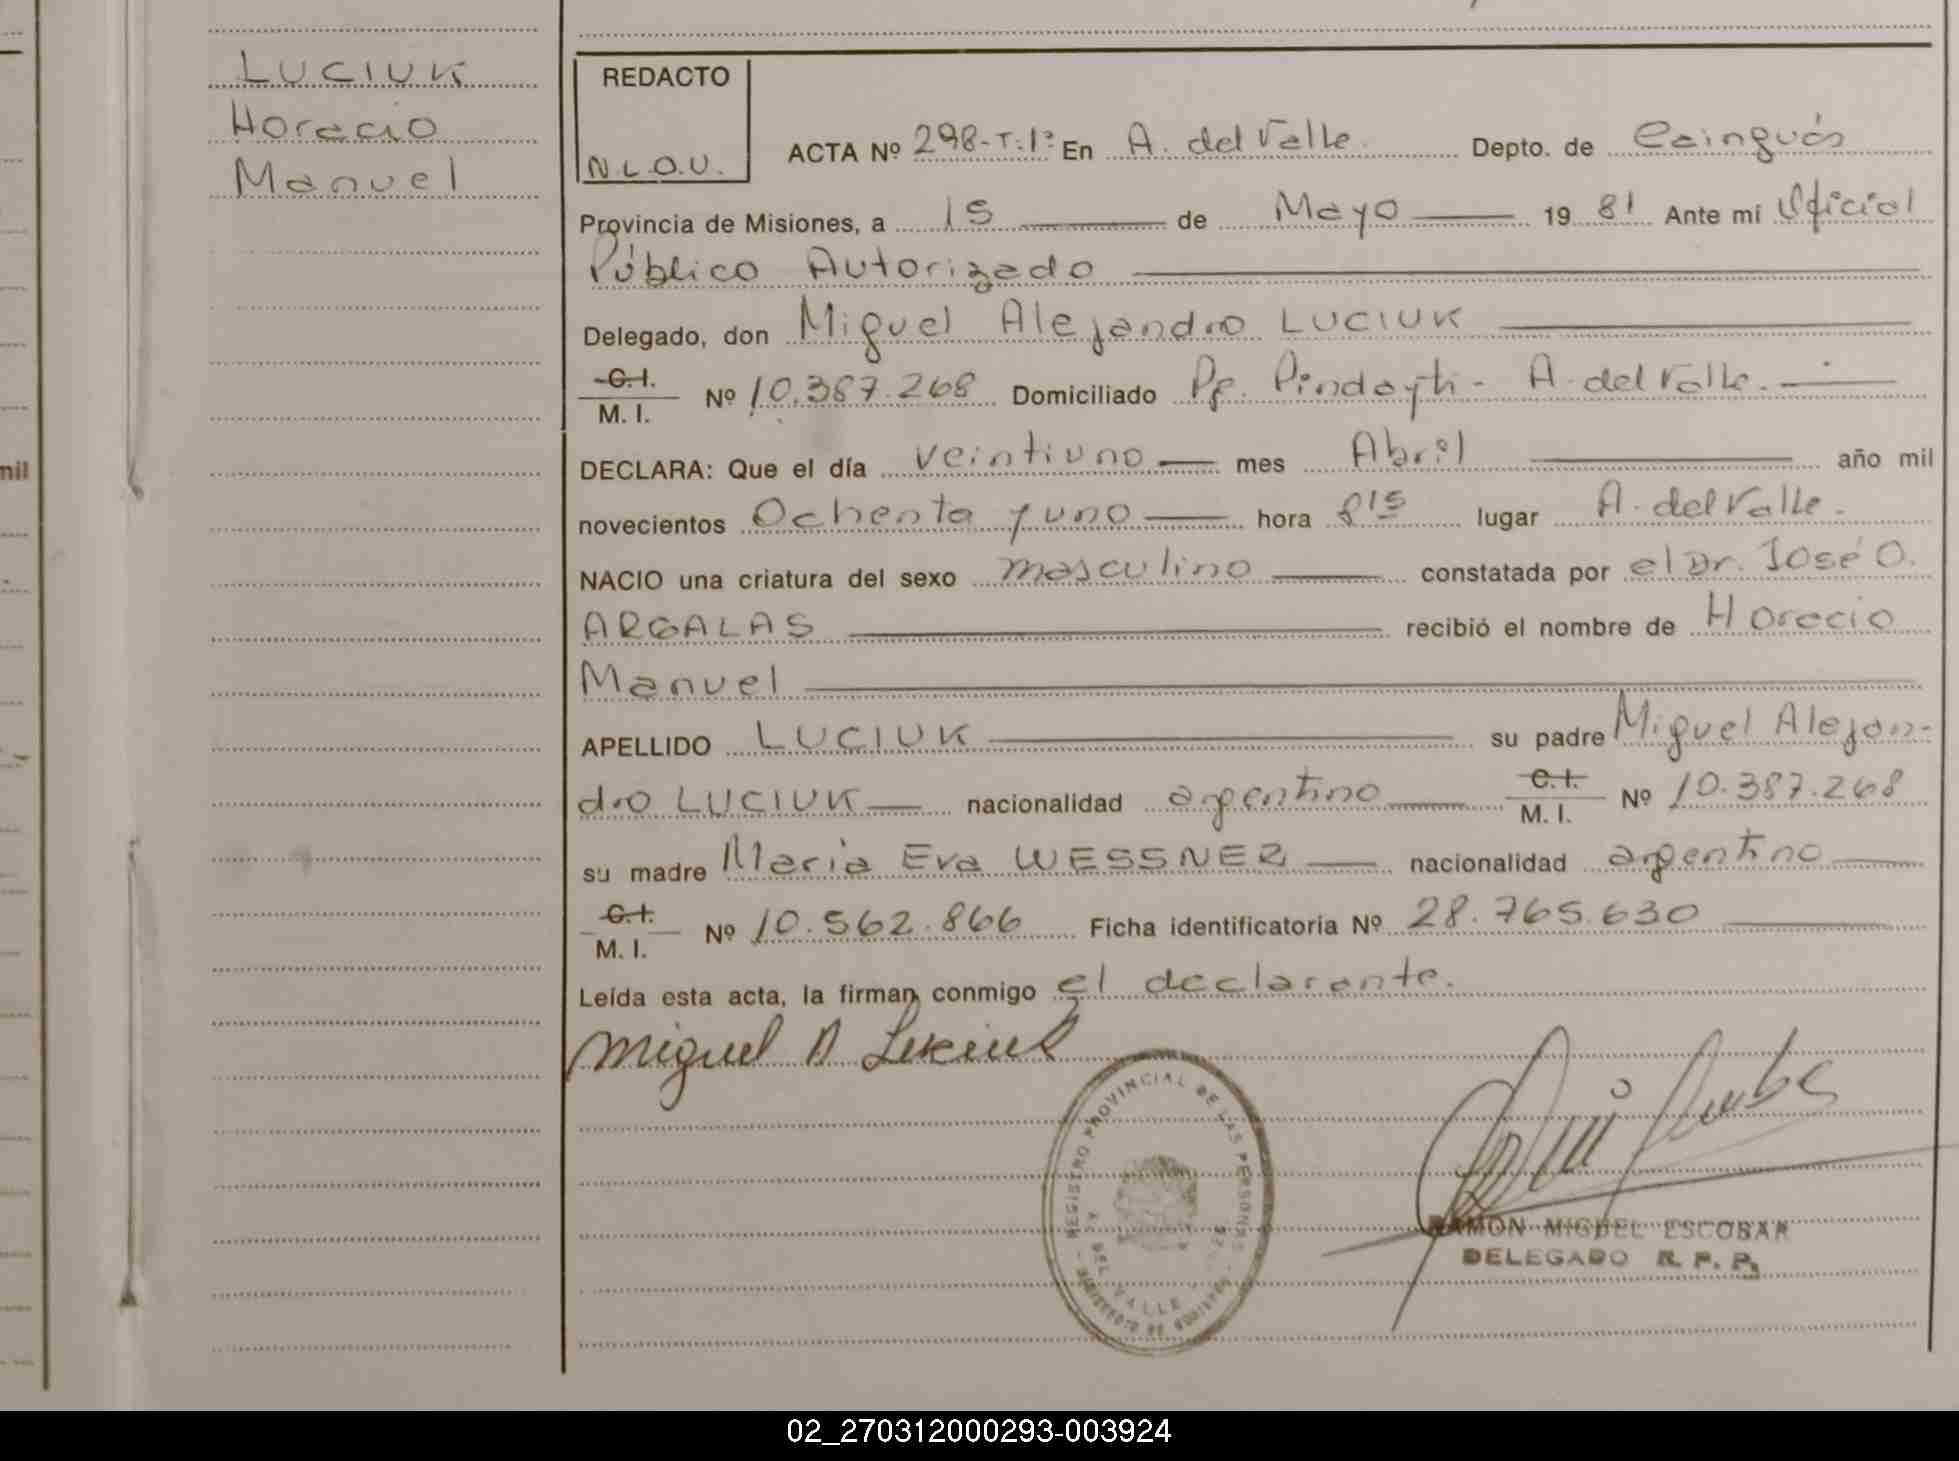 LUCIUK
Horacio
Manuel
mil
REDACTO
N.L.O.U.
ACTA Nº 298-T:1º En A. del Valle. Depto. de Cainguás
Provincia de Misiones, a 15 de Mayo 19 81 Ante mi Oficial
Público Autorizado
Delegado, don Miguel Alejandro LUCIUK
C.I.
M. I. Nº 10.387.268 Domiciliado Pje. Pindayti - A. del Valle.
DECLARA: Que el día veintiuno mes Abril año mil
novecientos Ochenta y uno hora 8:15 lugar A. del Valle.
NACIO una criatura del sexo masculino constatada por el Dr. José O.
ARGALAS recibió el nombre de Horacio
Manuel
APELLIDO LUCIUK su padre Miguel Alejan-
dro LUCIUK nacionalidad argentino C.I.
M. I. Nº 10.387.268
su madre Maria Eva WESSNER nacionalidad argentino
C.I.
M. I. Nº 10.562.866 Ficha identificatoria Nº 28.765.630
Leída esta acta, la firman conmigo el declarante.
Miguel A Lukiuk
REGISTRO PROVINCIAL DE LAS PERSONAS
DEL VALLE
RAMON MIGUEL ESCOBAR
DELEGADO R. P. P.
02_270312000293-003924